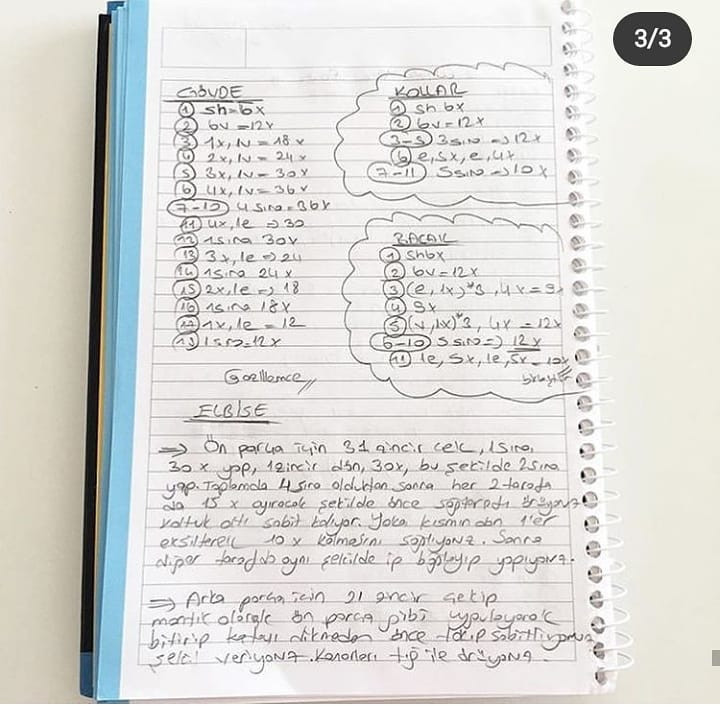 3/3
GÖVDE
① sh=6x
② 6v=12x
③ 1x, 1v=18x
④ 2x, 1v=24x
⑤ 3x, 1v=30x
⑥ 4x, 1v=36x
7-10 4 sıra=36x
⑪ 4x, 1e ⇒ 30
⑫ 1sıra 30x
⑬ 3x, 1e ⇒ 24
⑭ 1sıra 24x
⑮ 2x, 1e ⇒ 18
⑯ 1sıra 18x
1x, 1e = 12
1sıra=12x
KOLLAR
① sh 6x
② 6v=12x
3-5 3sıra ⇒ 12x
⑥ e, 5x, e, 4x
7-11 5sıra ⇒ 10x
BACAK
① sh6x
② 6v=12x
③ (e, 1x)*3, 4x=9x
④ 9x
⑤ (v, 1x)*3, 4x=12x
6-10 5 sıra ⇒ 12x
⑪ 1e, 5x, 1e, 5x=10x
birleştir
ELBİSE
⇒ Ön parça için 31 zincir çek, 1sıra,
30 x yap, 1zincir dön, 30x, bu şekilde 2sıra
yap. Toplamda 4 sıra olduktan sonra her 2 tarafa
da 15 x ayıracak şekilde önce
koltuk altı sabit kalıyor. Yaka kısmından 1'er
eksilterek 10 x kalmasını sağlıyoruz. Sonra
diğer tarafda aynı şekilde ip bağlayıp yapıyoruz.
⇒ Arka parça için 21 zincir çekip
mantık olarak ön parça gibi uygulayarak
bitirip kafayı dikmeden önce takıp sabitliyoruz
şekil veriyoruz. Kenarları tığ ile örüyoruz.